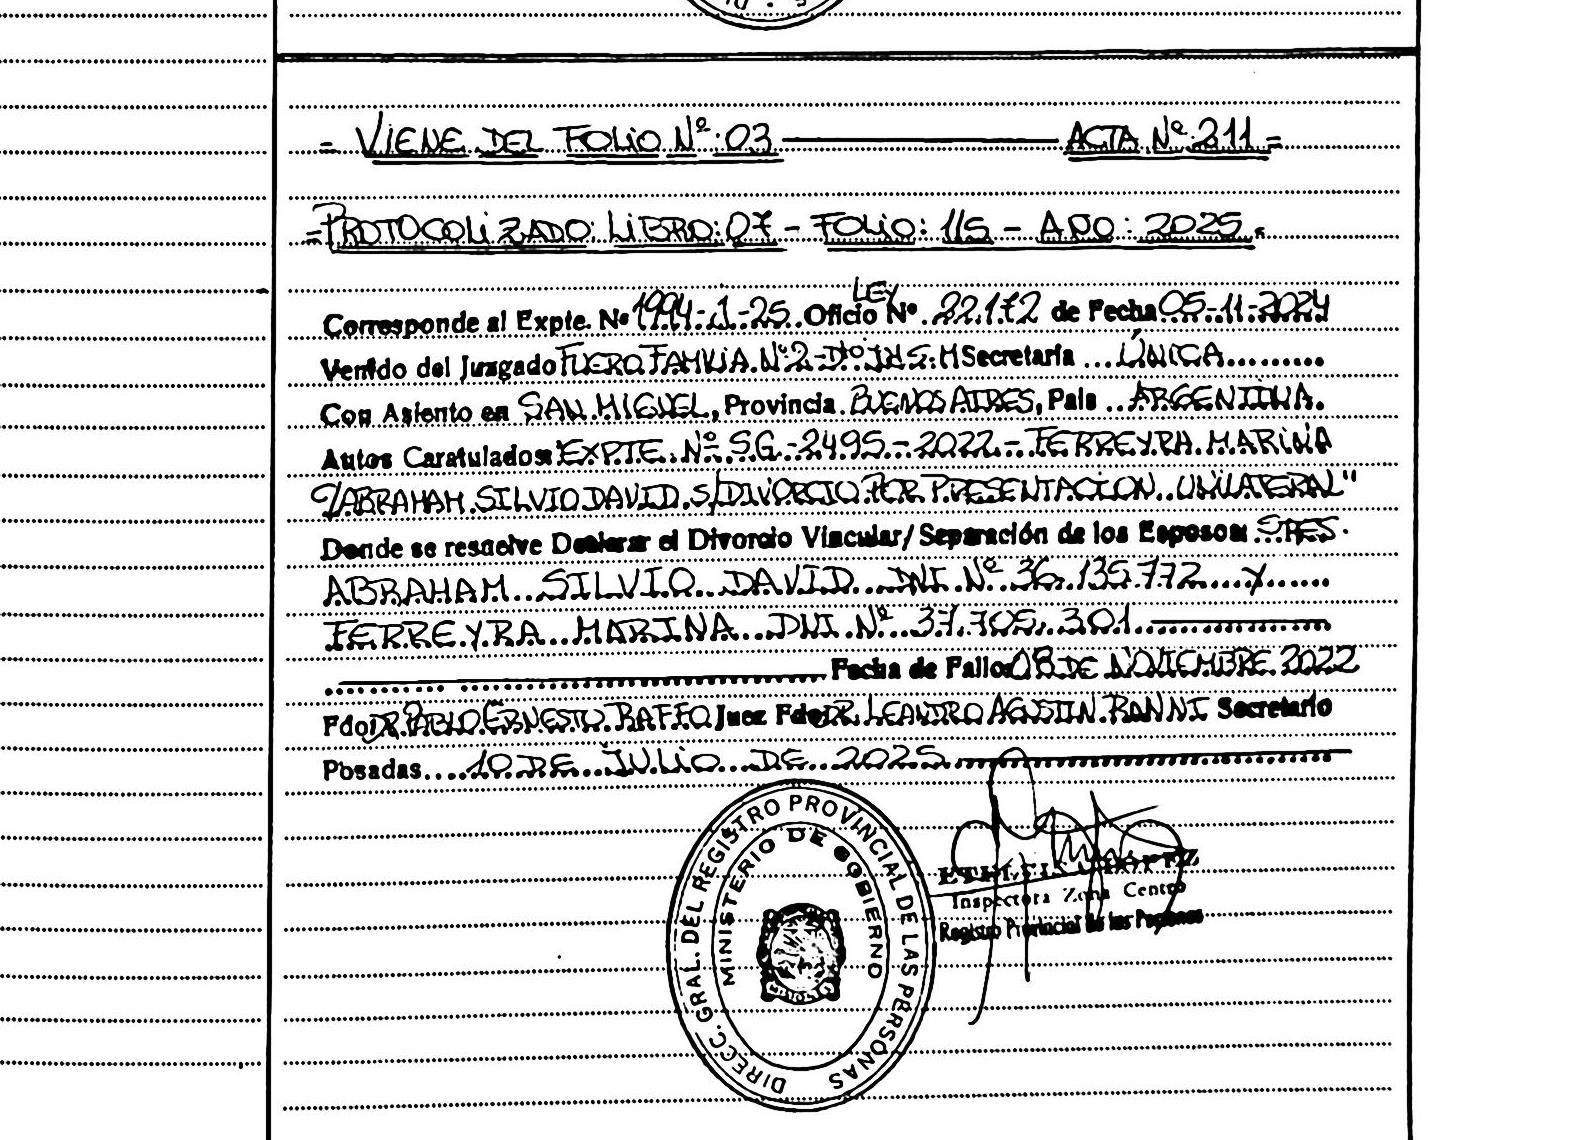 = VIENE DEL FOLIO Nº: 03 ACTA Nº 211 =
= PROTOCOLIZADO: LIBRO: 07 - FOLIO: 115 - AÑO: 2025.
LEY
Corresponde al Expte. Nº 1994-1-25 Oficio Nº 22.172 de Fecha 05-11-2024
Venido del Juzgado FUERO FAMILIA Nº 2 Secretaría ÚNICA
Con Asiento en SAN MIGUEL, Provincia BUENOS AIRES, País ARGENTINA.
Autos Caratulados: EXPTE. Nº SG-2495-2022- FERREYRA MARINA
C/ABRAHAM SILVIO DAVID S/DIVORCIO POR PRESENTACIÓN UNILATERAL"
Donde se resuelve Declarar el Divorcio Vincular/Separación de los Esposos: SRES.
ABRAHAM SILVIO DAVID DNI Nº 36.135.772 y
FERREYRA MARINA DNI Nº 37.705.301
Fecha de Fallo: 08 DE NOVIEMBRE 2022
Fdo: DR. PABLO ERNESTO RAFFO Juez Fdo: DR. LEANDRO AGUSTIN BANNI Secretario
Posadas 10 DE JULIO DE 2025
DIRECC. GRAL. DEL REGISTRO PROVINCIAL DE LAS PERSONAS
MINISTERIO DE GOBIERNO
MISIONES
Inspectora Zona Centro
Registro Provincial de las Personas